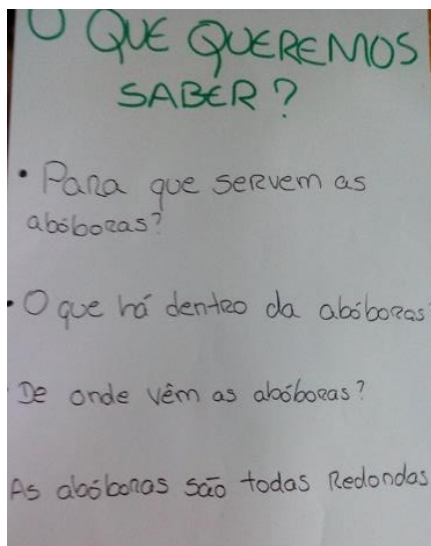 O QUE QUEREMOS
SABER?
• Para que servem as
abóboras?
• O que há dentro da abóboras
De onde vêm as abóboras?
As abóboras são todas Redondas